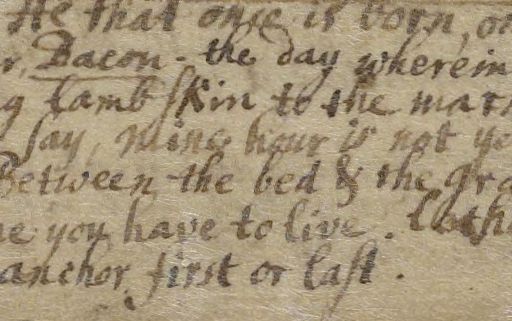 He that once is born, o
r, Bacon. the day wherein
g Lamb skin to the mar
say, mine hour is not ye
Between the bed & the gra
me you have to live. Cotho
anchor first or last.